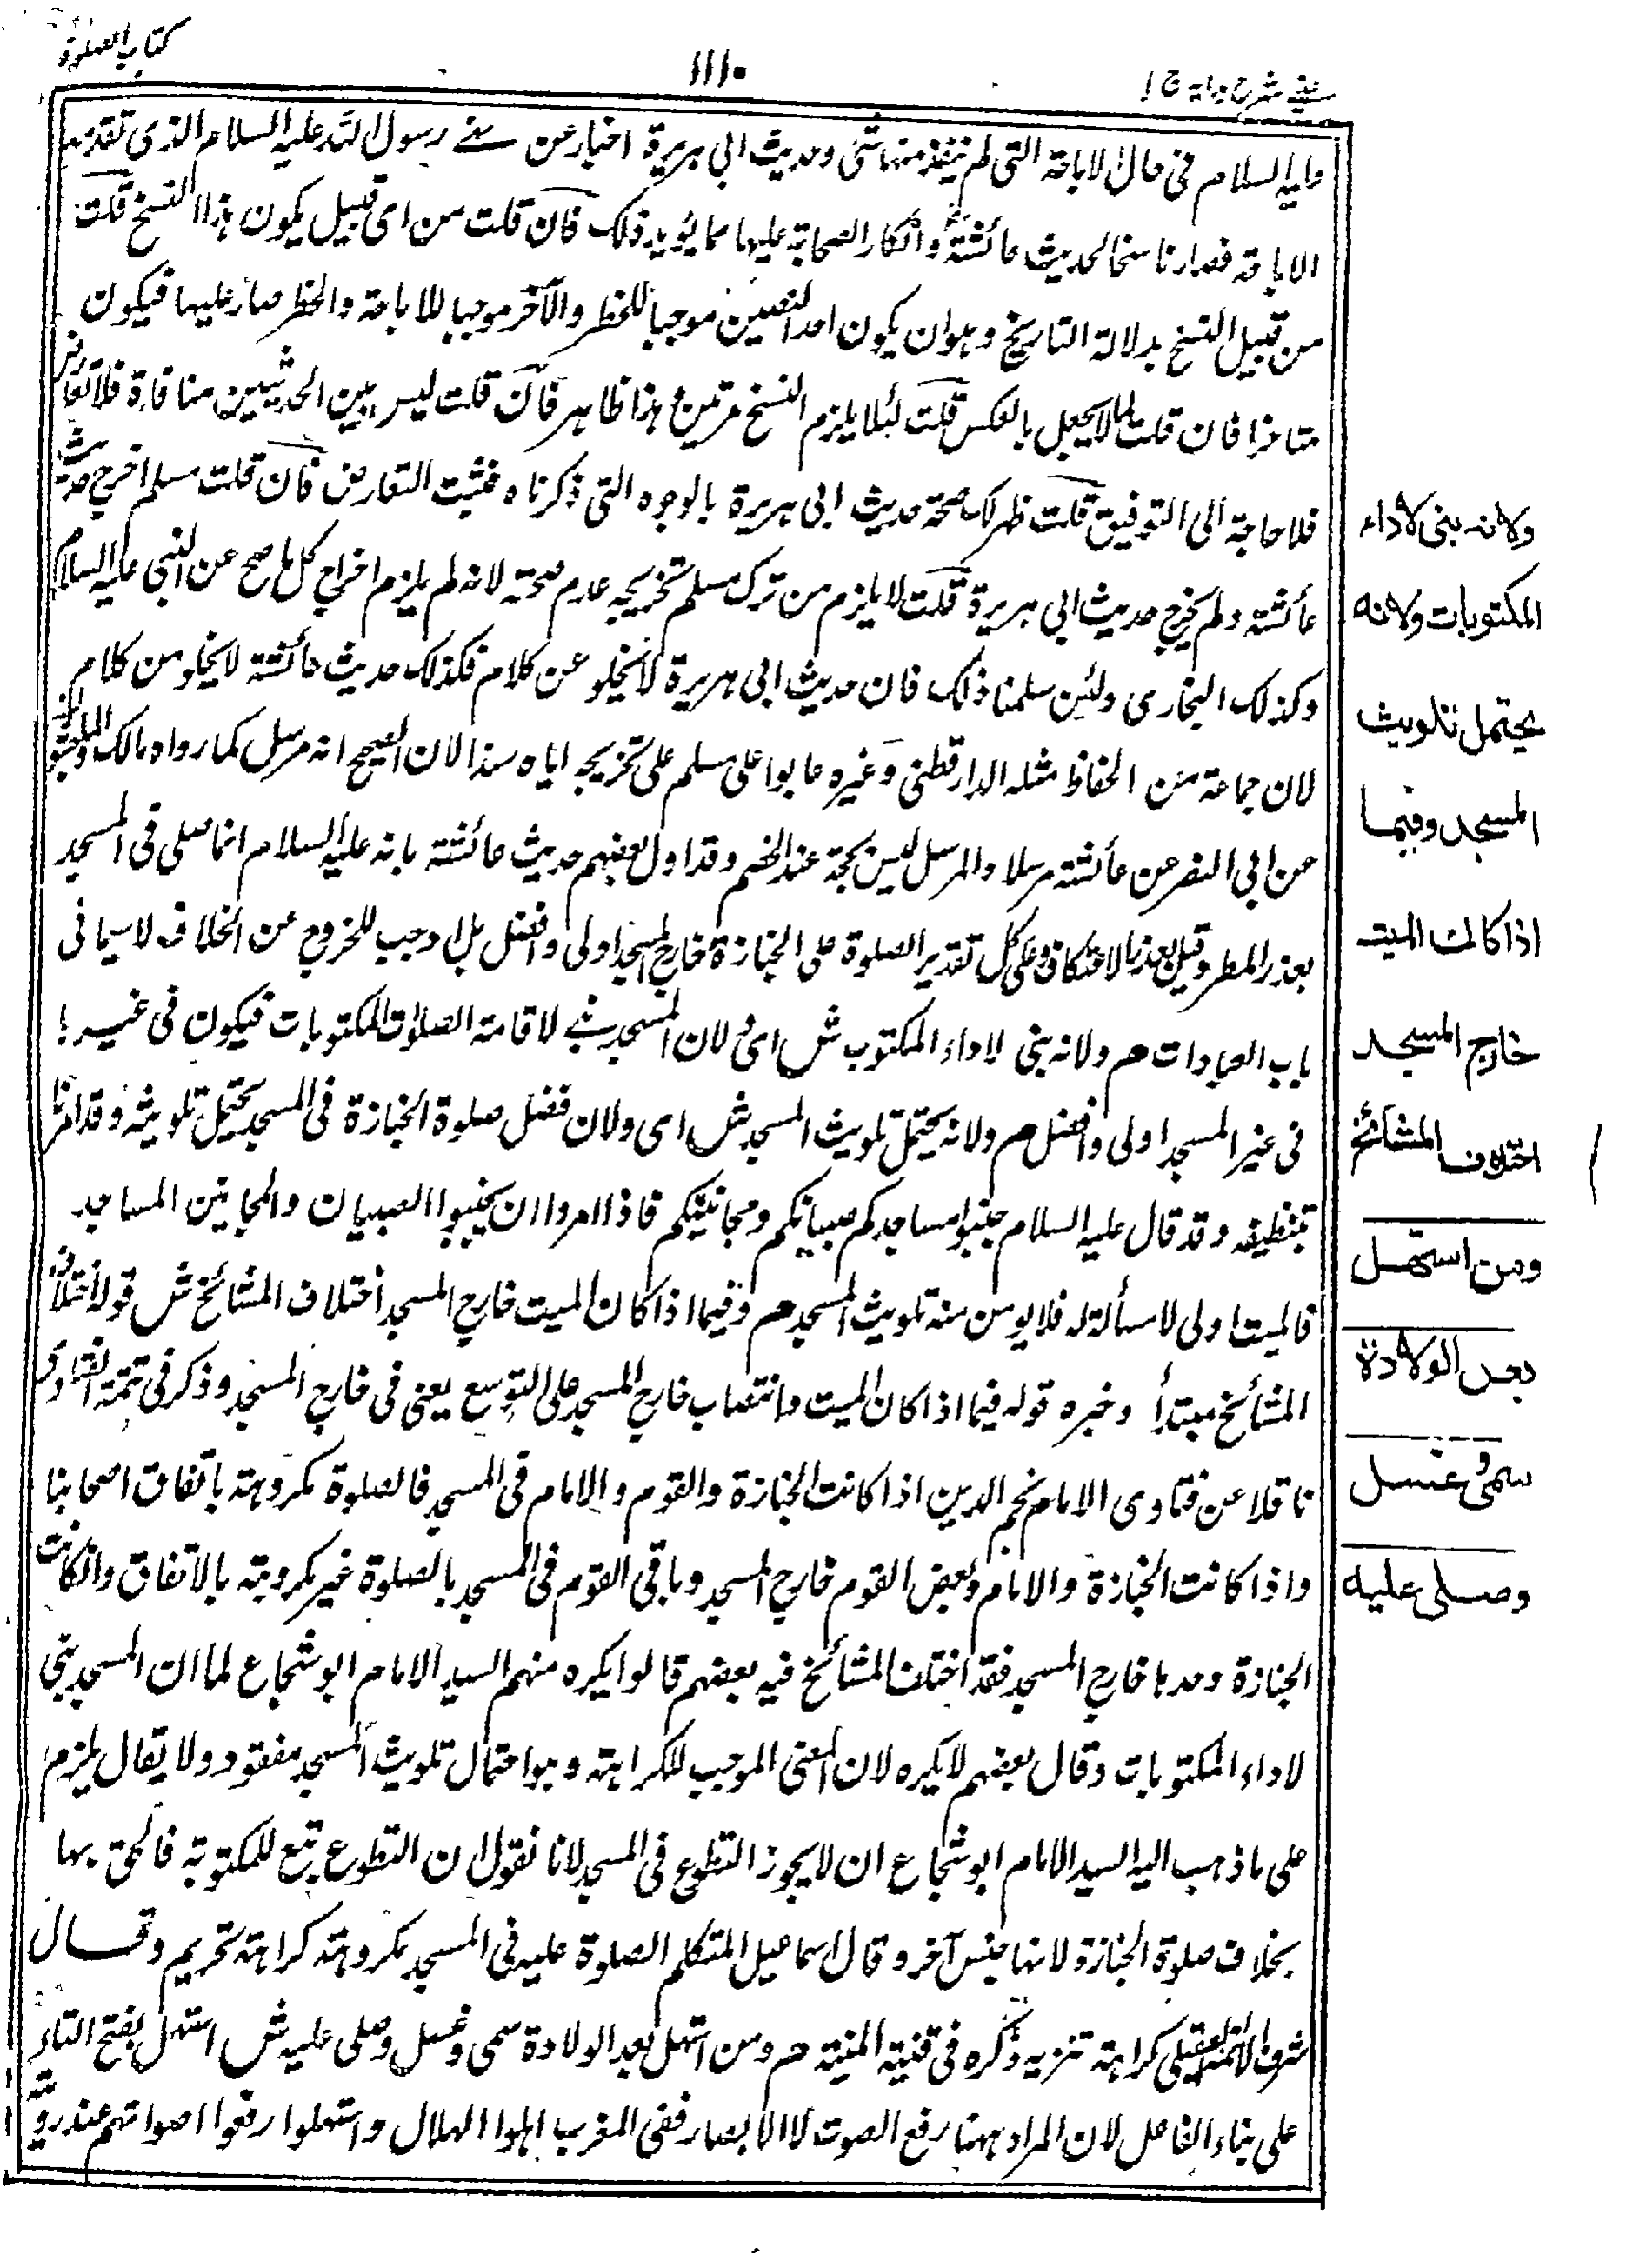 عينى شرح هداية ج ١
١١١٠
كتاب الصلوة
عليه السلام فى حال الاباحة التى لم ينفذ منها شئ وحديث ابى هريرة اخبار عن نهى رسول الله عليه السلام الذى تقدمه
الاباحة فصار ناسخا لحديث عائشة وانكار الصحابة عليها مما يؤيد ذلك فان قلت من اى قبيل يكون هذا النسخ قلت
من قبيل النسخ بدلالة التاريخ وهو ان يكون احد النصين موجبا للحظر والآخر موجبا للاباحة والحظر صار عليها فيكون
متاخرا فان قلت لم لا يجعل بالعكس قلت لئلا يلزم النسخ مرتين وهذا ظاهر فان قلت ليس بين الحديثين منافاة فلا تعارض
فلا حاجة الى التوفيق قلت ظهر لك صحة حديث ابى هريرة بالوجوه التى ذكرناه فثبت التعارض فان قلت مسلم اخرج حديث
عائشة ولم يخرج حديث ابى هريرة قلت لا يلزم من ترك مسلم تخريجه عدم صحته لانه لم يلزم اخراج كل ما صح عن النبى عليه السلام
وكذلك البخارى ولئن سلمنا ذلك فان حديث ابى هريرة لا يخلو عن كلام فكذلك حديث عائشة لا يخلو من كلام
لان جماعة من الحفاظ مثل الدارقطنى وغيره عابوا على مسلم على تخريجه اياه مسندا لان الصحيح انه مرسل كما رواه مالك والماجشون
عن ابى النضر عن عائشة مرسلا والمرسل ليس بحجة عند الخصم وقد اول بعضهم حديث عائشة بانه عليه السلام انما صلى فى المسجد
بعذر المطر وقيل بعذر الاعتكاف وعلى كل تقدير الصلوة على الجنازة خارج المسجد اولى وافضل بل اوجب للخروج عن الخلاف لا سيما فى
باب العبادات م ولانه بنى لاداء المكتوب ش اى لان المسجد بنى لاقامة الصلوات المكتوبات فيكون فى غيرها
فى غير المسجد اولى وافضل م ولانه يحتمل تلويث المسجد ش اى ولان فعل صلوة الجنازة فى المسجد يحتمل تلويثه وقد امرنا
بتنظيفه وقد قال عليه السلام جنبوا مساجدكم صبيانكم ومجانينكم فاذا امروا ان يجنبوا الصبيان والمجانين المساجد
فالميت اولى لا مسألة له فلا يومن منه تلويث المسجد م وفيما اذا كان الميت خارج المسجد اختلاف المشائخ ش قوله اختلاف
المشائخ مبتدأ وخبره قوله فيما اذا كان الميت وانتصاب خارج المسجد على التوسع يعنى فى خارج المسجد وذكر فى تتمة الفتاوى
ناقلا عن فتاوى الامام نجم الدين اذا كانت الجنازة والقوم والامام فى المسجد فالصلوة مكروهة باتفاق اصحابنا
واذا كانت الجنازة والامام وبعض القوم خارج المسجد وباقى القوم فى المسجد بالصلوة غير مكروهة بالاتفاق وان كانت
الجنازة وحدها خارج المسجد فقد اختلف المشائخ فيه بعضهم قالوا يكره منهم السيد الامام ابو شجاع لما ان المسجد بنى
لاداء المكتوبات وقال بعضهم لا يكره لان المعنى الموجب للكراهة وهو احتمال تلويث المسجد مفقود ولا يقال يلزم
على ما ذهب اليه السيد الامام ابو شجاع ان لا يجوز التطوع فى المسجد لانا نقول ان التطوع تبع للمكتوبة فالحق بها
بخلاف صلوة الجنازة لانها جنس آخر وقال اسماعيل المتكلم الصلوة عليه فى المسجد مكروهة كراهة تحريم وقال
شرف الائمة العقيلى كراهة تنزيه ذكره فى قنية المنية م ومن استهل بعد الولادة سمى وغسل وصلى عليه ش استهل بفتح التاء
على بناء الفاعل لان المراد ههنا رفع الصوت لا الابصار ففى المغرب اهلوا الهلال واستهلوا رفعوا اصواتهم عند رويته
ولانه بنى لاداء
المكتوبات ولانه
يحتمل تلويث
المسجد وفيما
اذا كان الميت
خارج المسجد
اختلاف المشائخ
ومن استهل
بعد الولادة
سمى وغسل
وصلى عليه